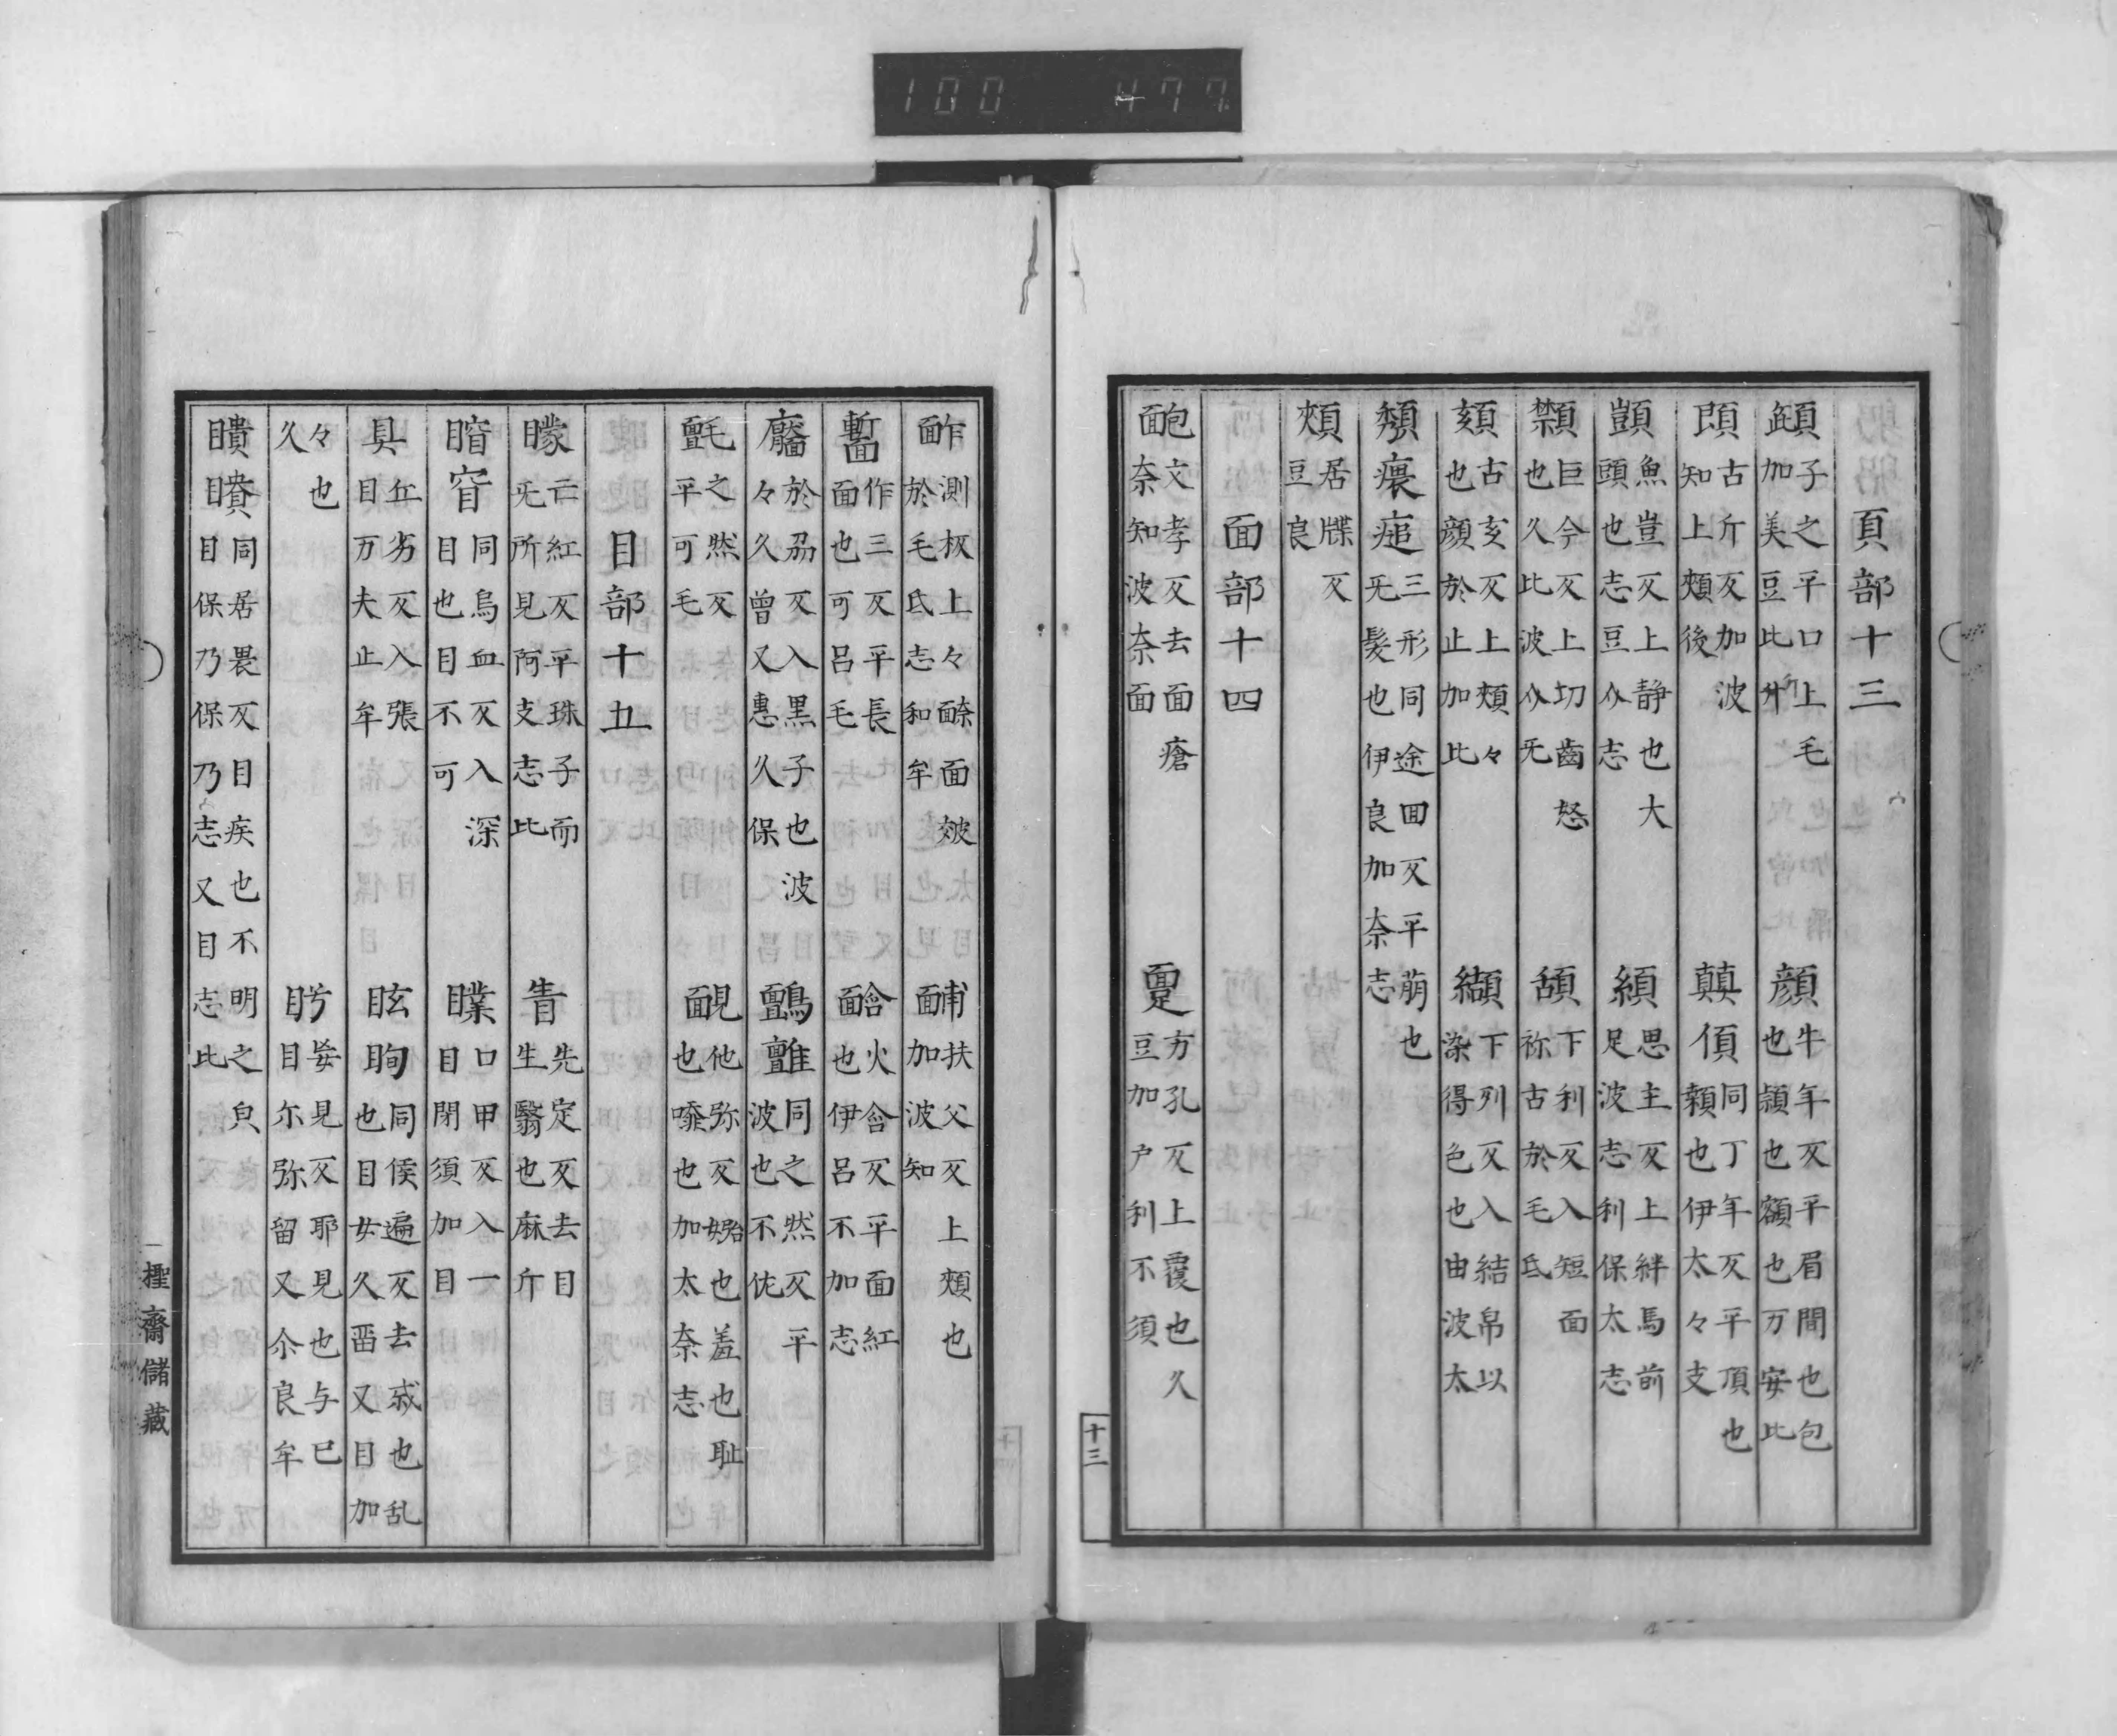 100 477
頁部十三
子之平口上毛
加美豆比
顔
牛年反平眉間也包
也顙也額也万安比
古斤反加波
知上頰後
顚傎
同丁年反平頂也
顙也伊太々支
顗
魚豈反上静也大
頭也志豆介志
頿
思主反上絆馬前
足波志利保太志
顉
巨今反上切齒怒
也久此波介无
頢
下利反入短面
祢古於毛氐
頦
古亥反上頰々
也顔於止加比
纈
下列反入結帛以
染得色也由波太
頹㿗㾽
三形同途回反平崩也
无髮也伊良加奈志
頰
居牒反
豆良
面部十四
皰
文孝反去面瘡
奈知波奈面
方孔反上覆也久
豆加戶利不須
十三
測板上々面皺
於毛氐志和牟
䩉
扶父反上頰也
加波知
作三反平長
面也可呂毛
火含反平面紅
也伊呂不加志
於刕反入黒子也波
々久曾又惠久保
同之然反平
波也不佐
之然反
平可毛
靦
他弥反姡也羞也耻
也噡也加太奈志
目部十五
矇
亡紅反平珠子而
无所見阿支志比
眚
先定反去目
生翳也麻斤
同烏血反入深
目也目不可
口甲反入一
目閉須加目
丘劣反入張
目万夫止牟
眩眴
同侯遍反去惑也乱
也目女久留又目加
々也
久
妄見反耶見也与已
目尓弥留又尒良牟
同居畏反目疾也不明之皃
目保乃保乃志又目志比
一檉齋儲藏